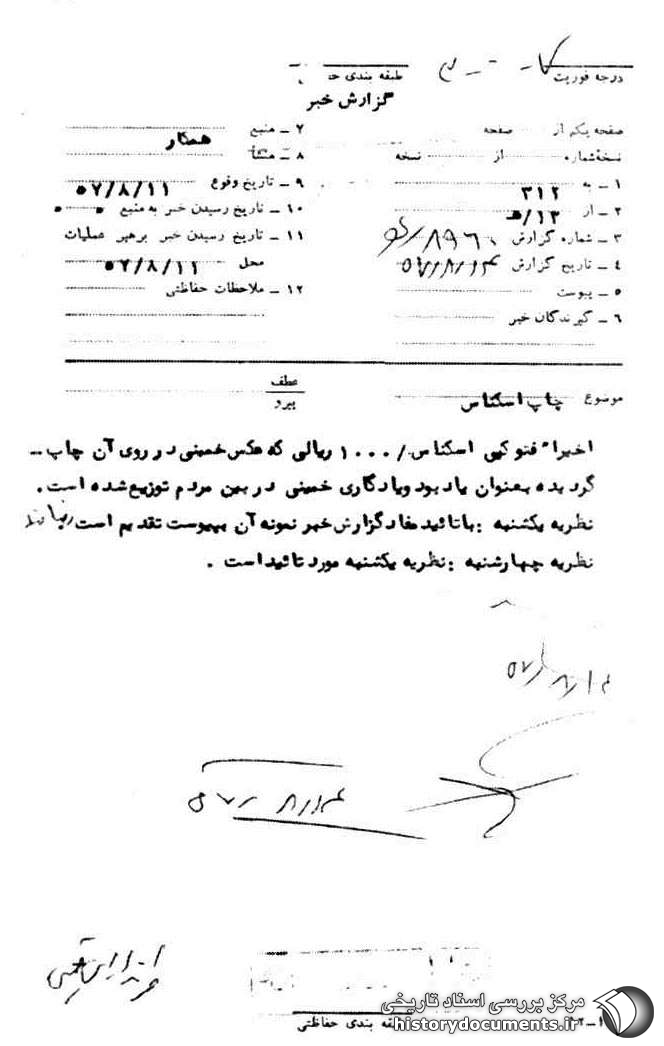 درجه فوریت
طبقه بندی
گزارش خبر
صفحه یکم از صفحه
نسخه شماره از نسخه
۱ ـ به ۳۱۲
۲ ـ از ۱۲/ﻫ
۳ ـ شماره گزارش
۴ ـ تاریخ گزارش ۵۷/۸/۱۴
۵ ـ پیوست
۶ ـ گیرندگان خبر
۷ ـ منبع همکار
۸ ـ منشأ
۹ ـ تاریخ وقوع ۵۷/۸/۱۱
۱۰ ـ تاریخ رسیدن خبر به منبع
۱۱ ـ تاریخ رسیدن خبر برهبر عملیات
محل ۵۷/۸/۱۱
۱۲ ـ ملاحظات حفاظتی
موضوع چاپ اسکناس
عطف
پیرو
اخیرا" فتوکپی اسکناس /۱۰۰۰ ریالی که عکس خمینی در روی آن چاپ ـ
گردیده بعنوان یادبود ویادگاری خمینی در بین مردم توزیع شده است.
نظریه یکشنبه : باتائید مفاد گزارش خبر نمونه آن بپیوست تقدیم است
نظریه چهارشنبه : نظریه یکشنبه مورد تائید است .
۵۷/۸/۱۴
طبقه بندی حفاظتی
مرکز بررسی اسناد تاریخی
historydocuments.ir